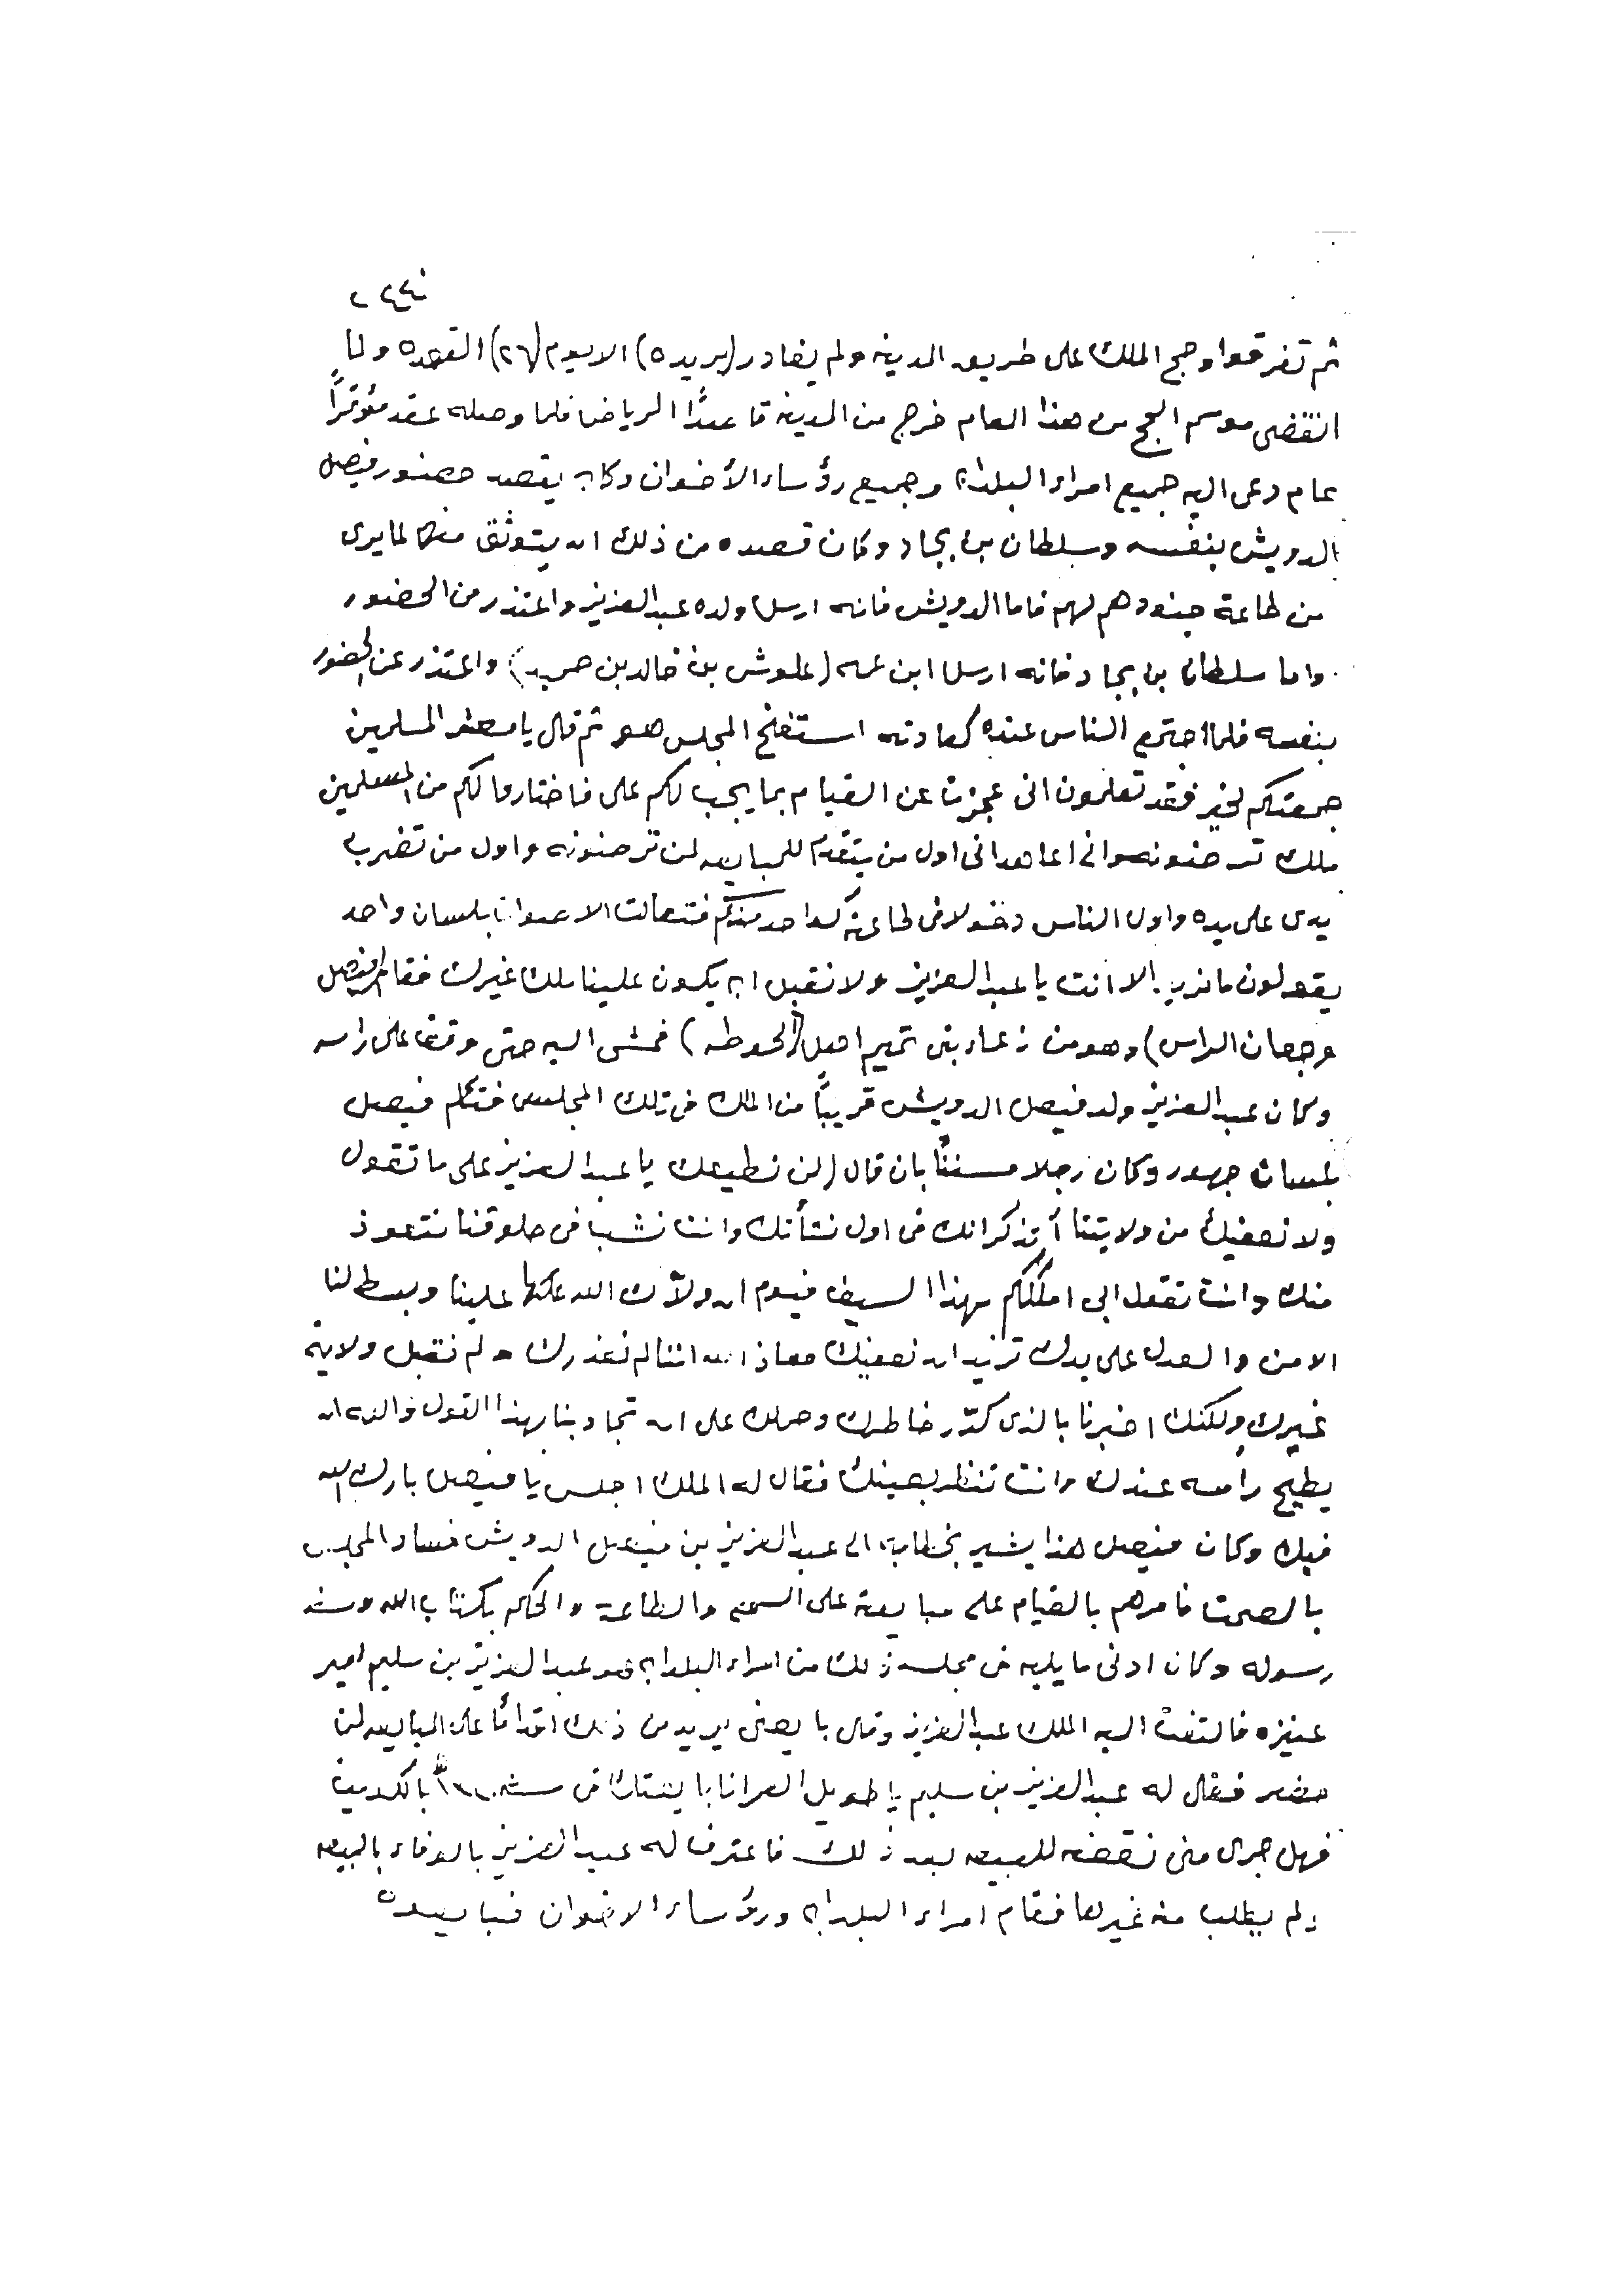 ثم تفرقوا وحج الملك على طريق المدينه ولم يغادر (بريده) الا يوم (٢٦) القعده ولما
انقضى موسم الحج من هذا العام خرج من المدينه قاعدًا الرياض فلما وصله عقد مؤتمرًا
عام دعى اليه جميع امراء البلدان وجميع رؤساء الأخوان وكان يقصد حضور فيصل
الدويش بنفسه وسلطان بن بجاد وكان قصده من ذلك ان يتوثق منهما لما يرى
من طاعة جنودهم لهم فاما الدويش فانه ارسل ولده عبدالعزيز واعتذر من الحضور
واما سلطان بن بجاد فانه ارسل ابن عمه (علوش بن خالد بن حميد) واعتذر عن الحضور
بنفسه فلما اجتمع الناس عنده كعادته استفتح المجلس هو ثم قال يا معشر المسلمين
جمعتكم لخير فقد تعلمون انى عجزت عن القيام بما يجب لكم على فاختاروا لكم من المسلمين
ملك ترضونه وانى اعاهد انى اول من يتقدم للمبايعه لمن ترضونه واول من تضرب
يدى على يده واول الناس دخولا فى طاعته كواحد منكم فتعالت الاصوات بلسان واحد
يقولون ما نريد الا انت يا عبدالعزيز ولا نقبل ان يكون علينا ملك غيرك فقام (فيصل
وجعان الراس) وهو من زعماء بنى تميم اهل (الحوطه) فمشى اليه حتى وقف على راسه
وكان عبدالعزيز ولد فيصل الدويش قريبًا من الملك فى تلك المجلس فتكلم فيصل
بلسان جهور وكان رجلا مسننًا بان قال (لن نطيعك يا عبدالعزيز على ما تقول
ولا نعفيك من ولايتنا أتذكر انك فى اول نشأتك وانت نشب فى حلوقنا نتعوذ
منك وانت تقول ابى املككم بهذا السيف فيوم ان ولاّك الله علينا وبسط لنا
الامن والعدل على يدك تريد ان نعفيك معاذ الله اننا لم نعذرك ولم نقبل ولاية
غيرك ولكنك اخبرنا بالذى كدّر خاطرك وحملك على ان تجاوبنا بهذا القول والله ان
يطيح رأسه عندك وانت تنظر بعينك فقال له الملك اجلس يا فيصل بارك الله
فيك وكان فيصل هذا يشير بخطابه الى عبدالعزيز بن فيصل الدويش فساد المجلس
بالصمت فامرهم بالقيام على مبايعة على السمع والطاعة والحكم بكتاب الله وسنة
رسوله وكان ادنى ما يليه فى مجلسه ذلك من امراء البلدان هو عبدالعزيز بن سليم امير
عنيزه فالتفت اليه الملك عبدالعزيز وقال بايعنى يريد من ذلك اقدامًا على المبايعه لمن
حضر فقال له عبدالعزيز بن سليم يا طويل العمر انا بايعتك فى سنة بالكويت
فهل جرى منى نقض للبيعه بعد ذلك فاعترف له عبدالعزيز بالوفاء بالبيعه
ولم يطلب منه غيرها فقام امراء البلدان ورؤساء الاخوان فبايعوه